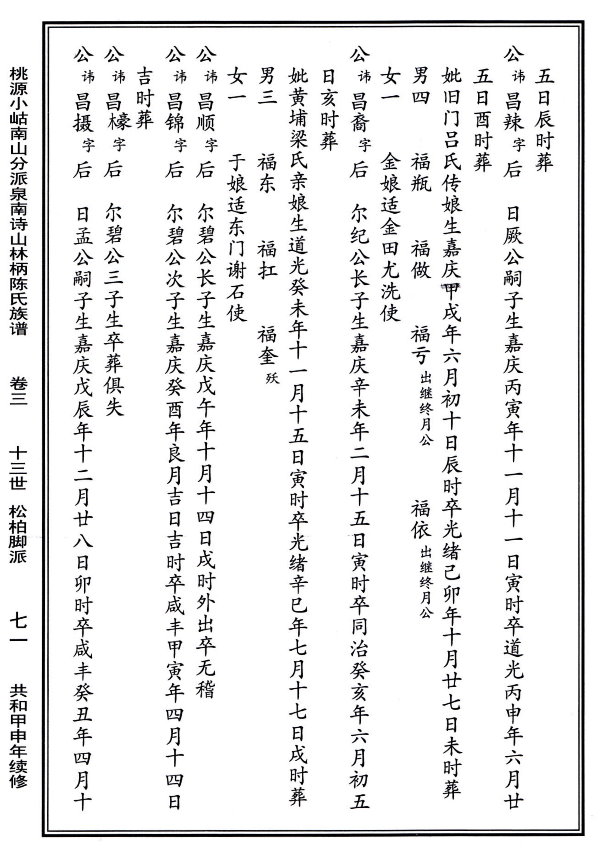 五日辰时葬
公讳昌辣字后 日厥公嗣子生嘉庆丙寅年十一月十一日寅时卒道光丙申年六月廿
五日酉时葬
妣旧门吕氏传娘生嘉庆甲戌年六月初十日辰时卒光绪己卯年十月廿七日未时葬
男四 福瓶 福做 福亏出继终月公 福依出继终月公
女一 金娘适金田尤洗使
公讳昌裔字后 尔纪公长子生嘉庆辛未年二月十五日寅时卒同治癸亥年六月初五
日亥时葬
妣黄埔梁氏亲娘生道光癸未年十一月十五日寅时卒光绪辛巳年七月十七日戌时葬
男三 福东 福扛 福奎殀
女一 于娘适东门谢石使
公讳昌顺字后 尔碧公长子生嘉庆戊午年十月十四日戌时外出卒无稽
公讳昌锦字后 尔碧公次子生嘉庆癸酉年良月吉日吉时卒咸丰甲寅年四月十四日
吉时葬
公讳昌檺字后 尔碧公三子生卒葬俱失
公讳昌摄字后 日孟公嗣子生嘉庆戊辰年十二月廿八日卯时卒咸丰癸丑年四月十
桃源小岵南山分派泉南诗山林柄陈氏族谱 卷三 十三世 松柏脚派 七一 共和甲申年续修